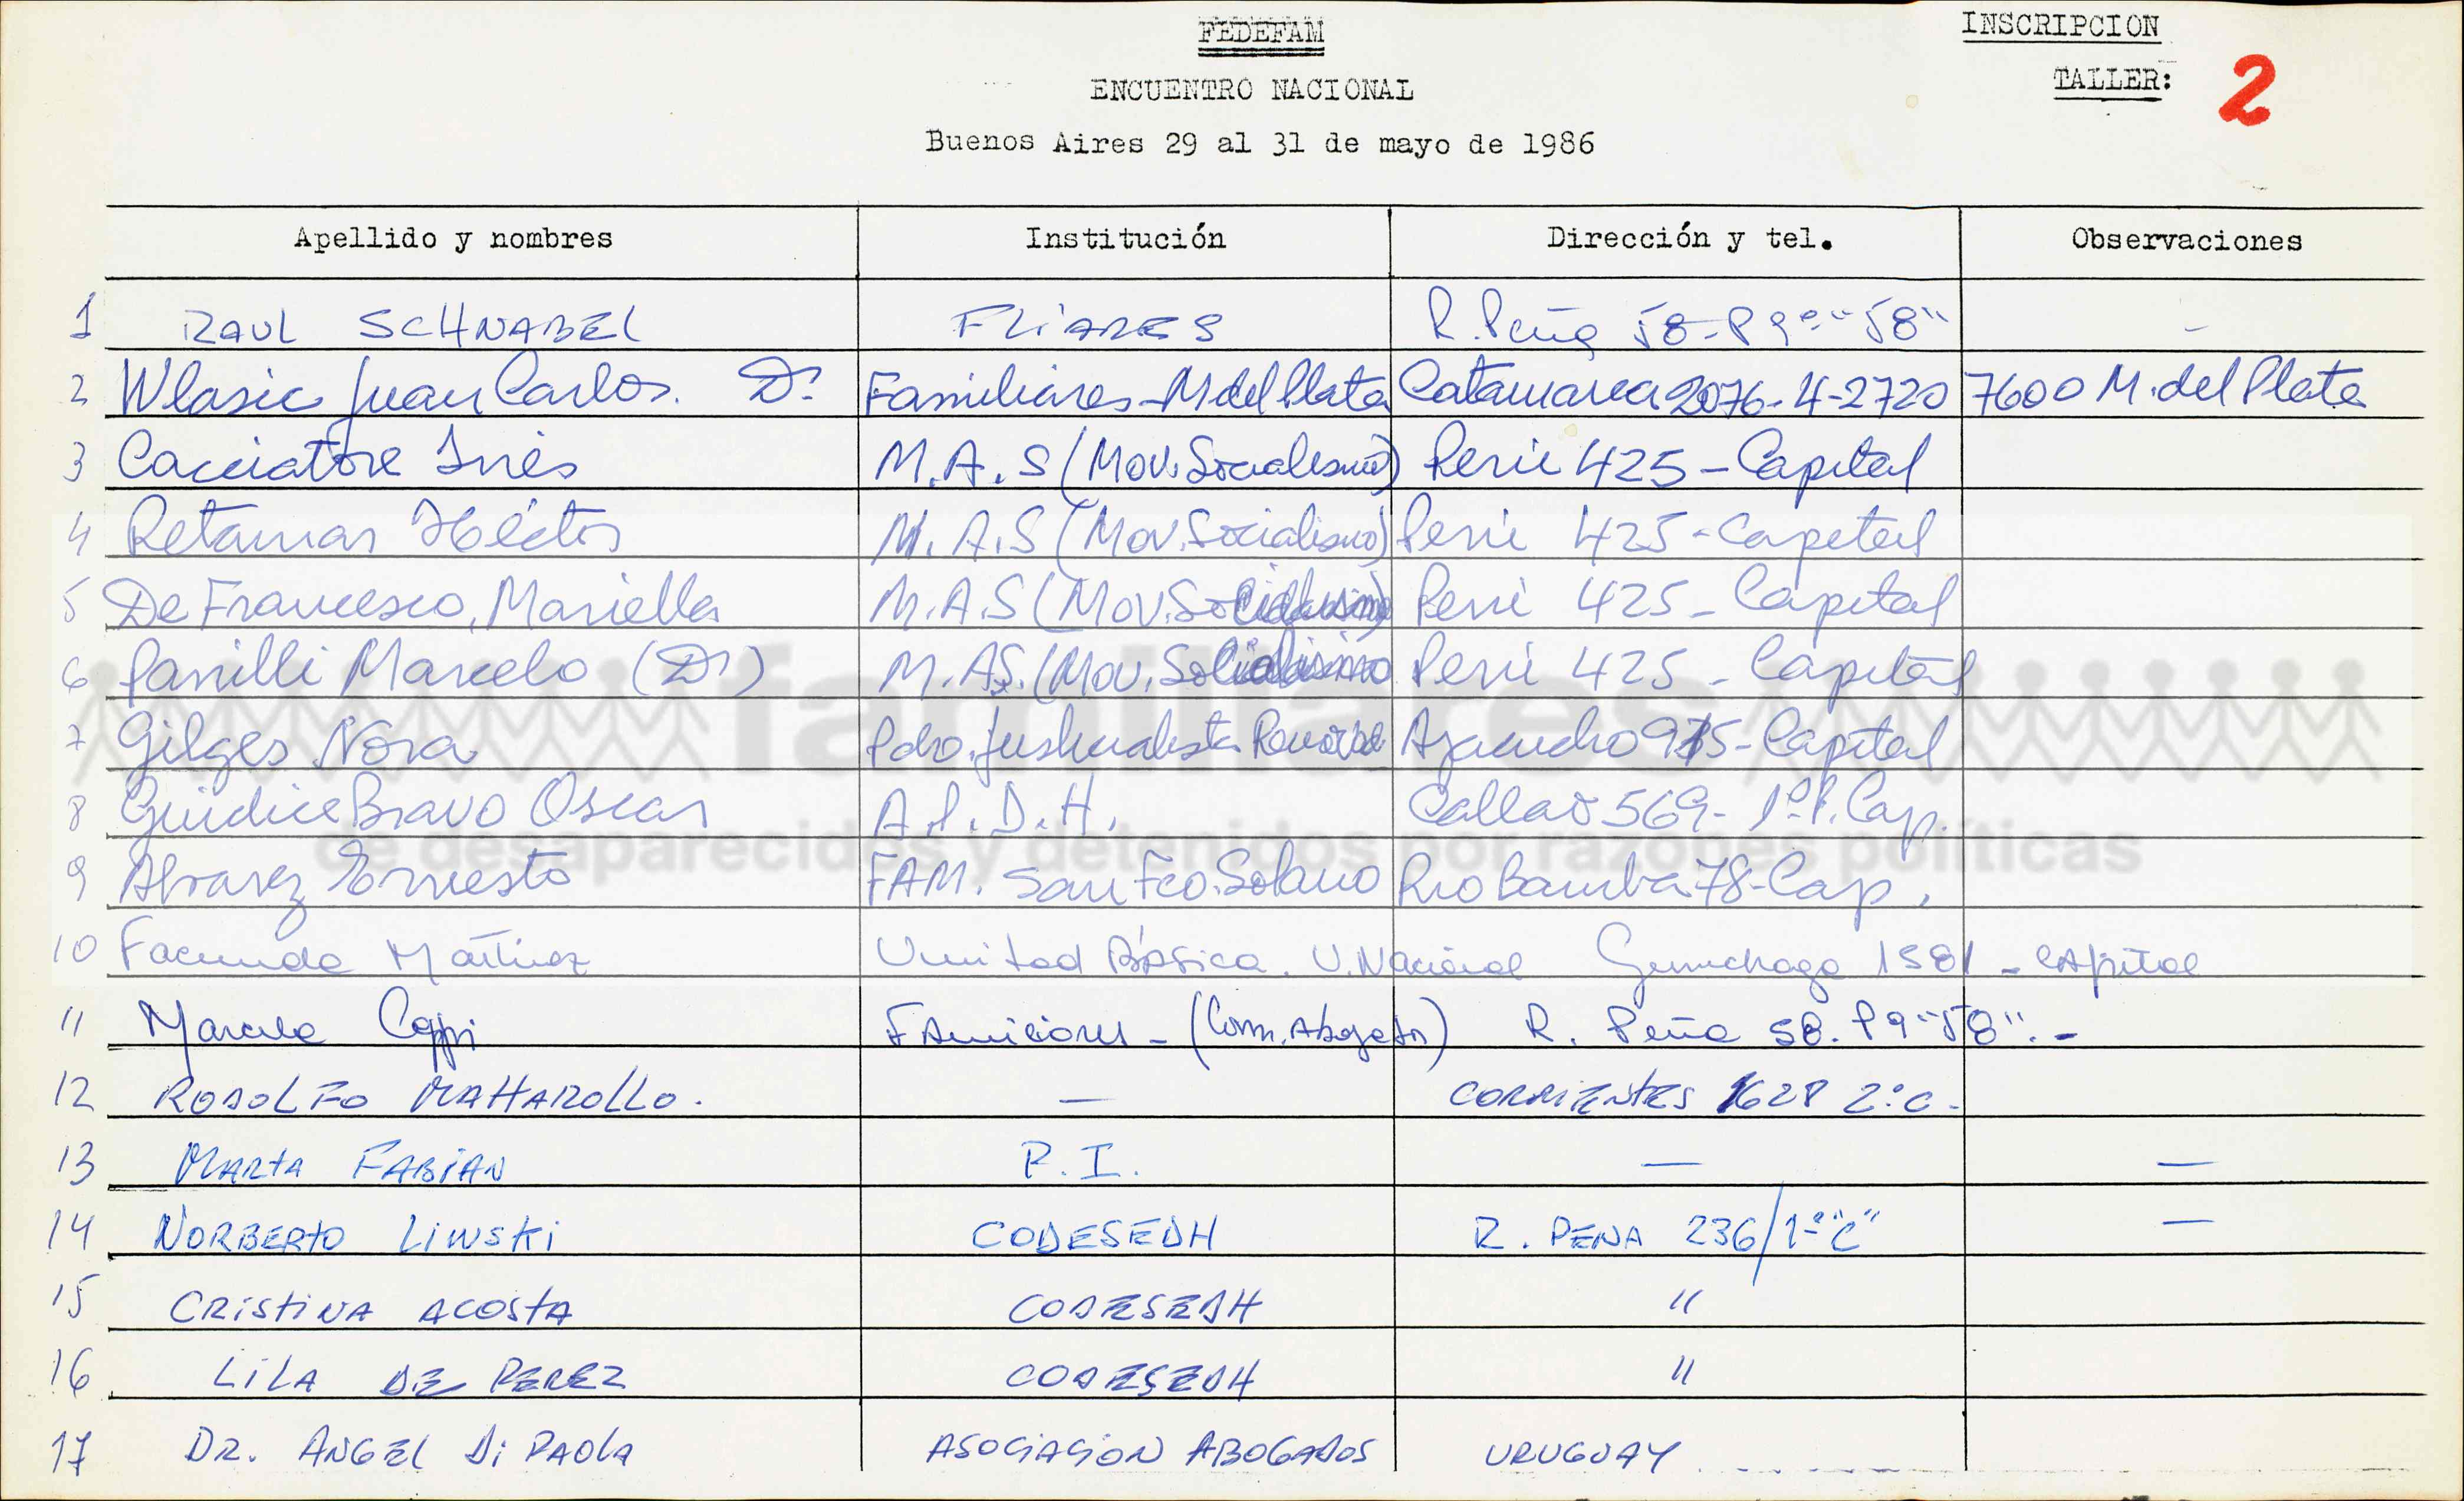 FEDEFAM
INSCRIPCION
ENCUENTRO NACIONAL
TALLER: 2
Buenos Aires 29 al 31 de mayo de 1986
Apellido y nombres Institución Dirección y tel. Observaciones
1 RAUL SCHNABEL FLiARES R. Peña 58-P9º "58" -
2 Wlasic Juan Carlos. Dr. Familiares-M del Plata Catamarca 2076-4-2720 7600 M. del Plata
3 Cacciatore Inés M.A.S (Mov. Socialismo) Perú 425-Capital
4 Retamar Héctor M.A.S (Mov. Socialismo) Perú 425-Capital
5 De Francesco, Mariella M.A.S (Mov. Socialismo) Perú 425-Capital
6 Parrilli Marcelo (Dr) M.A.S. (Mov. Socialismo Perú 425-Capital
7 Gilges Nora Pdo. Justicialista Ayacucho 915-Capital
8 Giudice Bravo Oscar A.P.D.H. Callao 569-1º P. Cap.
9 Alvarez Ernesto FAM. San Fco. Solano Rio Bamba 78-Cap.
10 Facundo Martinez Unidad Básica. U. Nacional Gurruchaga 1581 - CApital
11 Familiares - (Com. Abogados) R. Peña 58. P9 "58".-
12 RODOLFO MATTAROLLO. — CORRIENTES 1628 2º C.
13 MARTA FABIAN P.I. — —
14 NORBERTO LIWSKI CODESEDH R. PEÑA 236/1º "C" —
15 CRISTINA ACOSTA CODESEDH "
16 LILA DE PEREZ CODESEDH "
17 DR. ANGEL Di PAOLA ASOCIACION ABOGADOS URUGUAY
familiares
de desaparecidos y detenidos por razones políticas